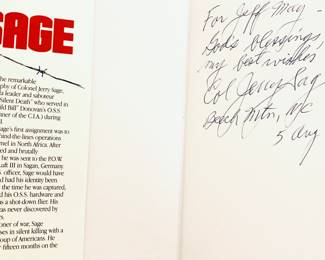 SAGE
he remarkable
phy of Colonel Jerry Sage,
a leader and saboteur
Silent Death" who served in
ld Bill" Donovan's O.S.S.
nner of the C.I.A.) during
Sage's first assignment was to
hind-the-lines operations
mel in North Africa. After
ed and brutally
he was sent to the P.O.W.
Luft III in Sagan, Germany.
. officer, Sage would have
had his identity been
t the time he was captured,
d his O.S.S. hardware and
s a shot-down flier. His
was never discovered by
rs.
oner of war, Sage
ses in silent killing with a
roup of Americans. He
r fifteen months on the
For Jeff May -
God's blessings,
my best wishes
Col Jerry Sage
Beach Mtn, NC
5 Aug